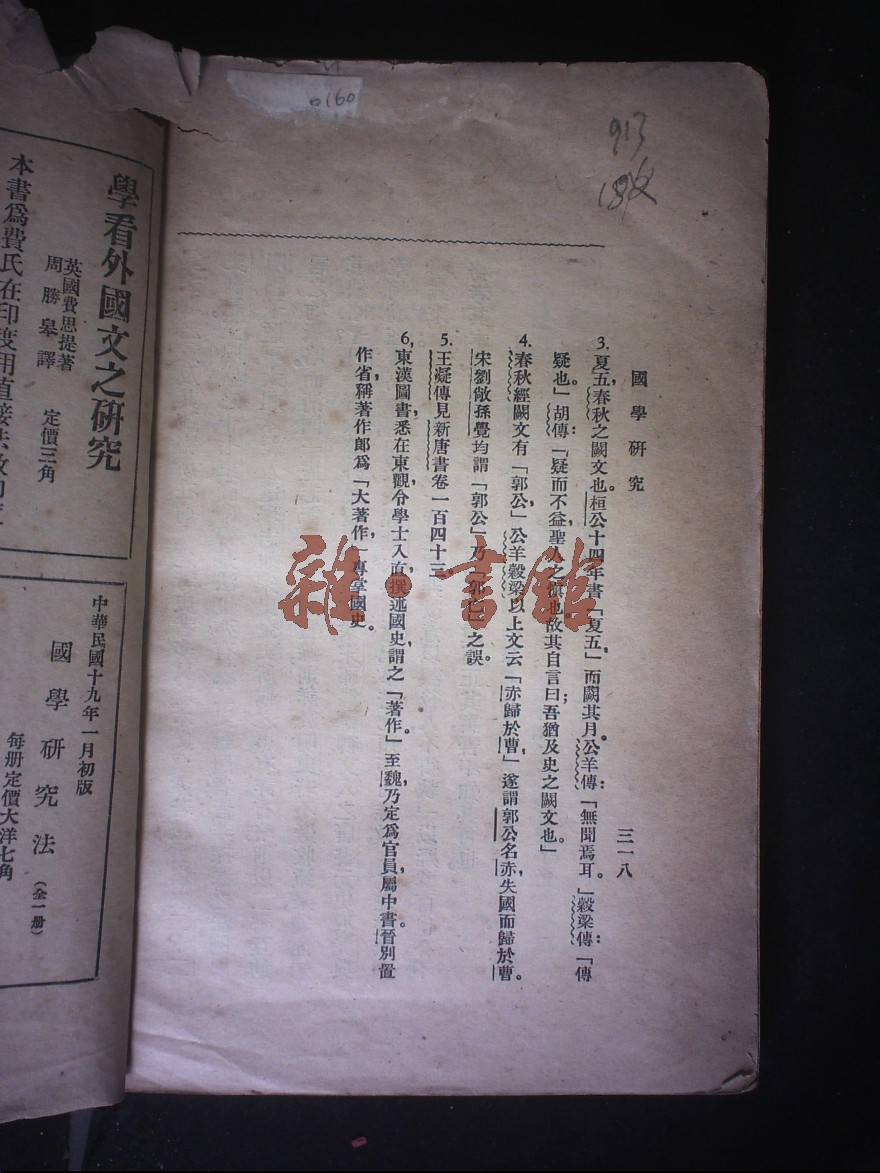 0160
913
國學研究
三一八
3.夏五，春秋之闕文也。桓公十四年書「夏五」，而闕其月。公羊傳：「無聞焉耳。」穀梁傳：「傳
疑也。」胡傳：「疑而不益，聖人之愼也；故其自言曰：吾猶及史之闕文也。」
4.春秋經闕文有「郭公」，公羊穀梁以上文云「赤歸於曹」，遂謂郭公名赤，失國而歸於曹。
宋劉敞孫覺均謂「郭公」乃「郭亡」之誤。
5.王凝傳見新唐書卷一百四十三
6,東漢圖書，悉在東觀，令學士入而撰述國史，謂之「著作。」至魏，乃定爲官員，屬中書。晉別置
作省，稱著作郎爲「大著作，」專掌國史。
雜·書館
學看外國文之研究
英國費思提著
周勝皋譯
定價三角
本書爲費氏在印度用直接法教
中華民國十九年一月初版
國學研究法
（全一册）
每册定價大洋七角